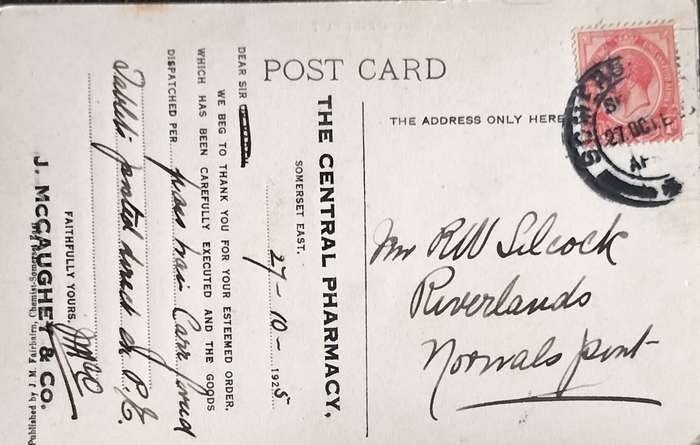 POST CARD
THE ADDRESS ONLY HERE
Mr RW Silcock
Riverlands
Normals Point
THE CENTRAL PHARMACY,
SOMERSET EAST.
27-10-1925
DEAR SIR
WE BEG TO THANK YOU FOR YOUR ESTEEMED ORDER,
WHICH HAS BEEN CAREFULLY EXECUTED AND THE GOODS
DISPATCHED PER pass train Carr forwd
Tablets posted direct ex P.E.
FAITHFULLY YOURS,
J. MCCAUGHEY & CO.
27 OCT